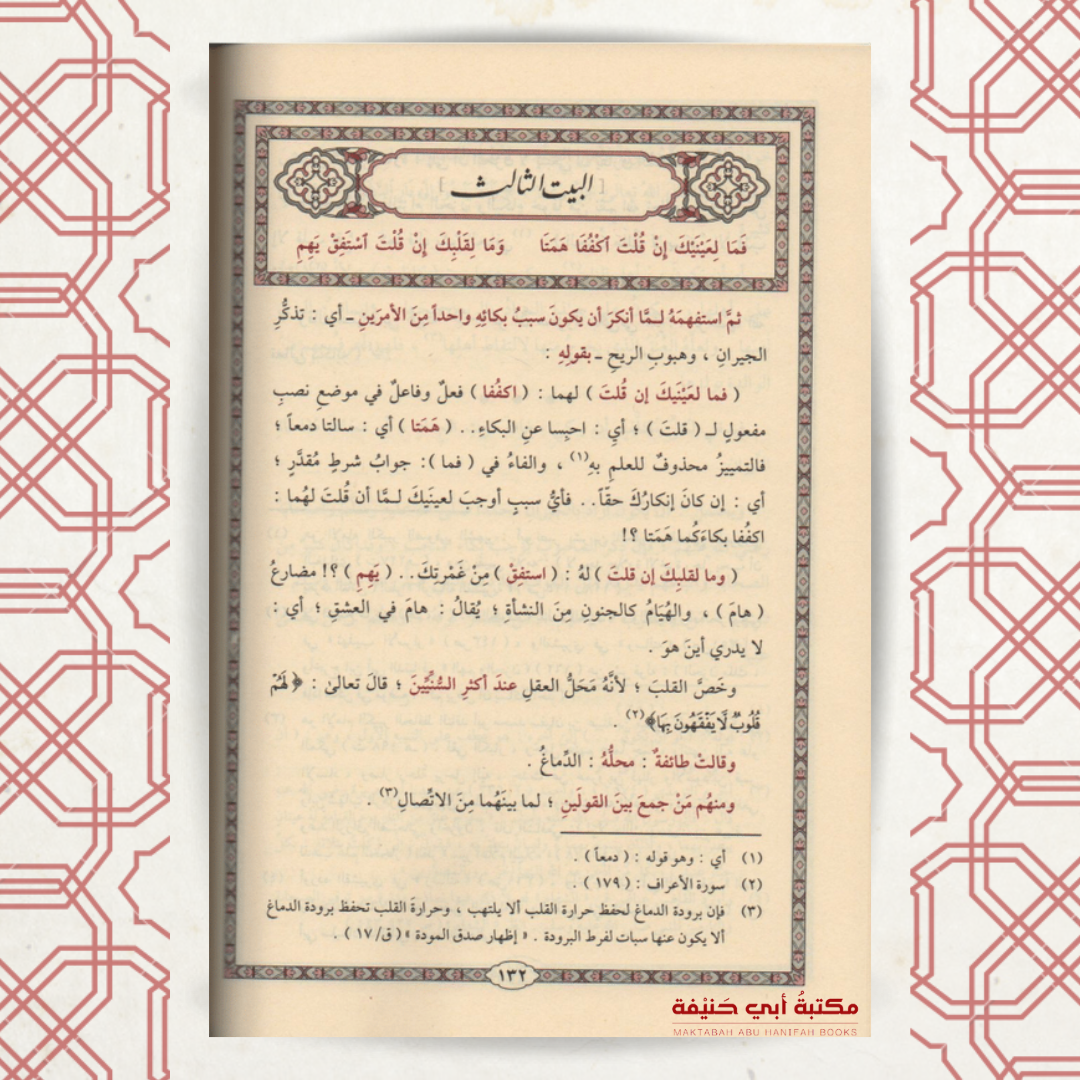 [ البيت الثالث ]
فَمَا لِعَيْنَيْكَ إِنْ قُلْتَ ٱكْفُفَا هَمَتَا وَمَا لِقَلْبِكَ إِنْ قُلْتَ ٱسْتَفِقْ يَهِمِ
ثمَّ استفهمَهُ لـمَّا أنكرَ أن يكونَ سببُ بكائِهِ واحداً مِنَ الأمرَينِ ـ أي : تذكُّرِ
الجيرانِ ، وهبوبِ الريحِ ـ بقولِهِ :
( فما لعَيْنَيكَ إن قُلتَ ) لهما : ( اكفُفا ) فعلٌ وفاعلٌ في موضعِ نصبِ
مفعولٍ لـ ( قلتَ ) ؛ أيِ : احبِسا عنِ البكاءِ.. ( هَمَتا ) أي : سالتا دمعاً ؛
فالتمييزُ محذوفٌ للعلمِ بهِ(١) ، والفاءُ في ( فما ): جوابُ شرطٍ مُقدَّرٍ ؛
أي : إن كانَ إنكارُكَ حقّاً.. فأيُّ سببٍ أوجبَ لعينَيكَ لـمَّا أن قُلتَ لهُما :
اكفُفا بكاءَكُما هَمَتا ؟!
( وما لقلبِكَ إن قلتَ ) لهُ : ( استفِقْ ) مِنْ غَمْرتِكَ.. ( يَهِمِ ) ؟! مضارعُ
( هامَ ) ، والهُيَامُ كالجنونِ مِنَ النشأةِ ؛ يُقالُ : هامَ في العشقِ ؛ أي :
لا يدري أينَ هوَ .
وخَصَّ القلبَ ؛ لأنَّهُ مَحَلُّ العقلِ عندَ أكثرِ السُّنِّيِّينَ ؛ قالَ تعالى : ﴿ لَهُمْ
قُلُوبٌ لَّا يَفْقَهُونَ بِهَا﴾(٢) .
وقالتْ طائفةٌ : محلُّهُ : الدِّماغُ .
ومنهُم مَنْ جمعَ بينَ القولَينِ ؛ لما بينَهُما مِنَ الاتِّصالِ(٣) .
(١) أي : وهو قوله : ( دمعاً ) .
(٢) سورة الأعراف : ( ١٧٩ ) .
(٣) فإن برودة الدماغ لحفظ حرارة القلب ألا يلتهب ، وحرارةَ القلب تحفظ برودة الدماغ
ألا يكون عنها سبات لفرط البرودة . « إظهار صدق المودة » ( ق/ ١٧ ) .
١٣٢
مكتبةُ أبي حَنيْفة
MAKTABAH ABU HANIFAH BOOKS